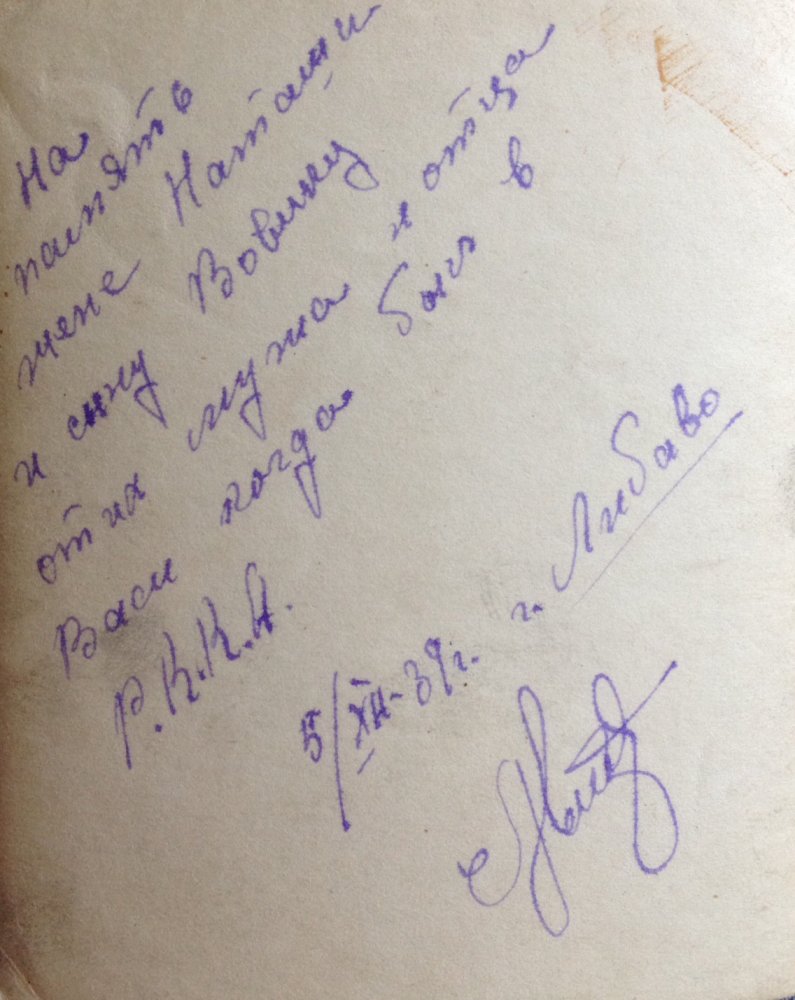 На
память
жене Наташи
и сыну Вовичу
от их мужа и отца
Васи когда был в
Р.К.К.А.
5/XII-39г. г. Либаво